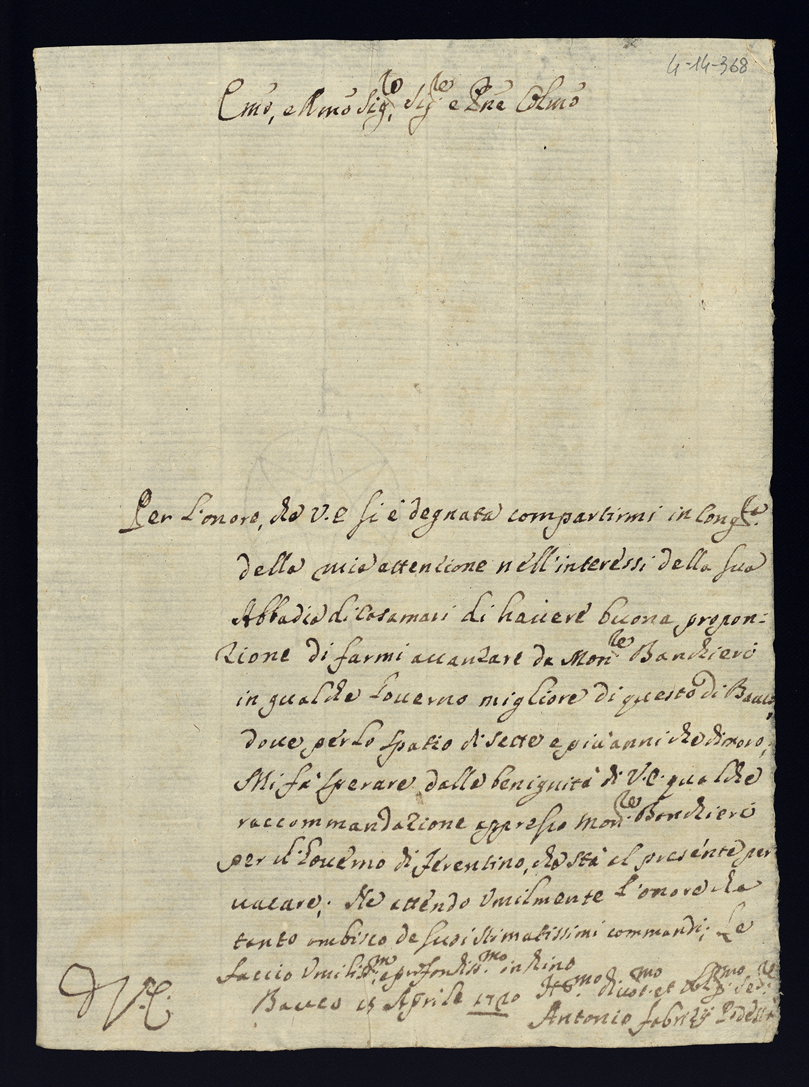 4-14-368
Emo, e Rmo Sig.re, Sig.re e Pne Colmo
Per l'onore, che V.E si è degnata compartirmi in Cong.ra
della mia attenzione nell'interessi della sua
Abbadia di Casamari di havere buona propon=
zione di farmi avanzare da Mon.re Banchieri
in qualche Governo migliore di questo di Bauco,
dove per lo spatio di sette e più anni che dimoro,
Mi fà sperare dalla benignità di V.E. qualche
raccommandazione appresso Mon.re Banchieri
per il Governo di Ferentino, che stà al presente per
vacare; Ne attendo umilmente l'onore che
tanto ambisco de suoi stimatissimi commandi; Le
faccio Umiliss.mo e profondiss.mo inchino
Bauco 18 Aprile 1720
D V.E.
Antonio Fabrizj